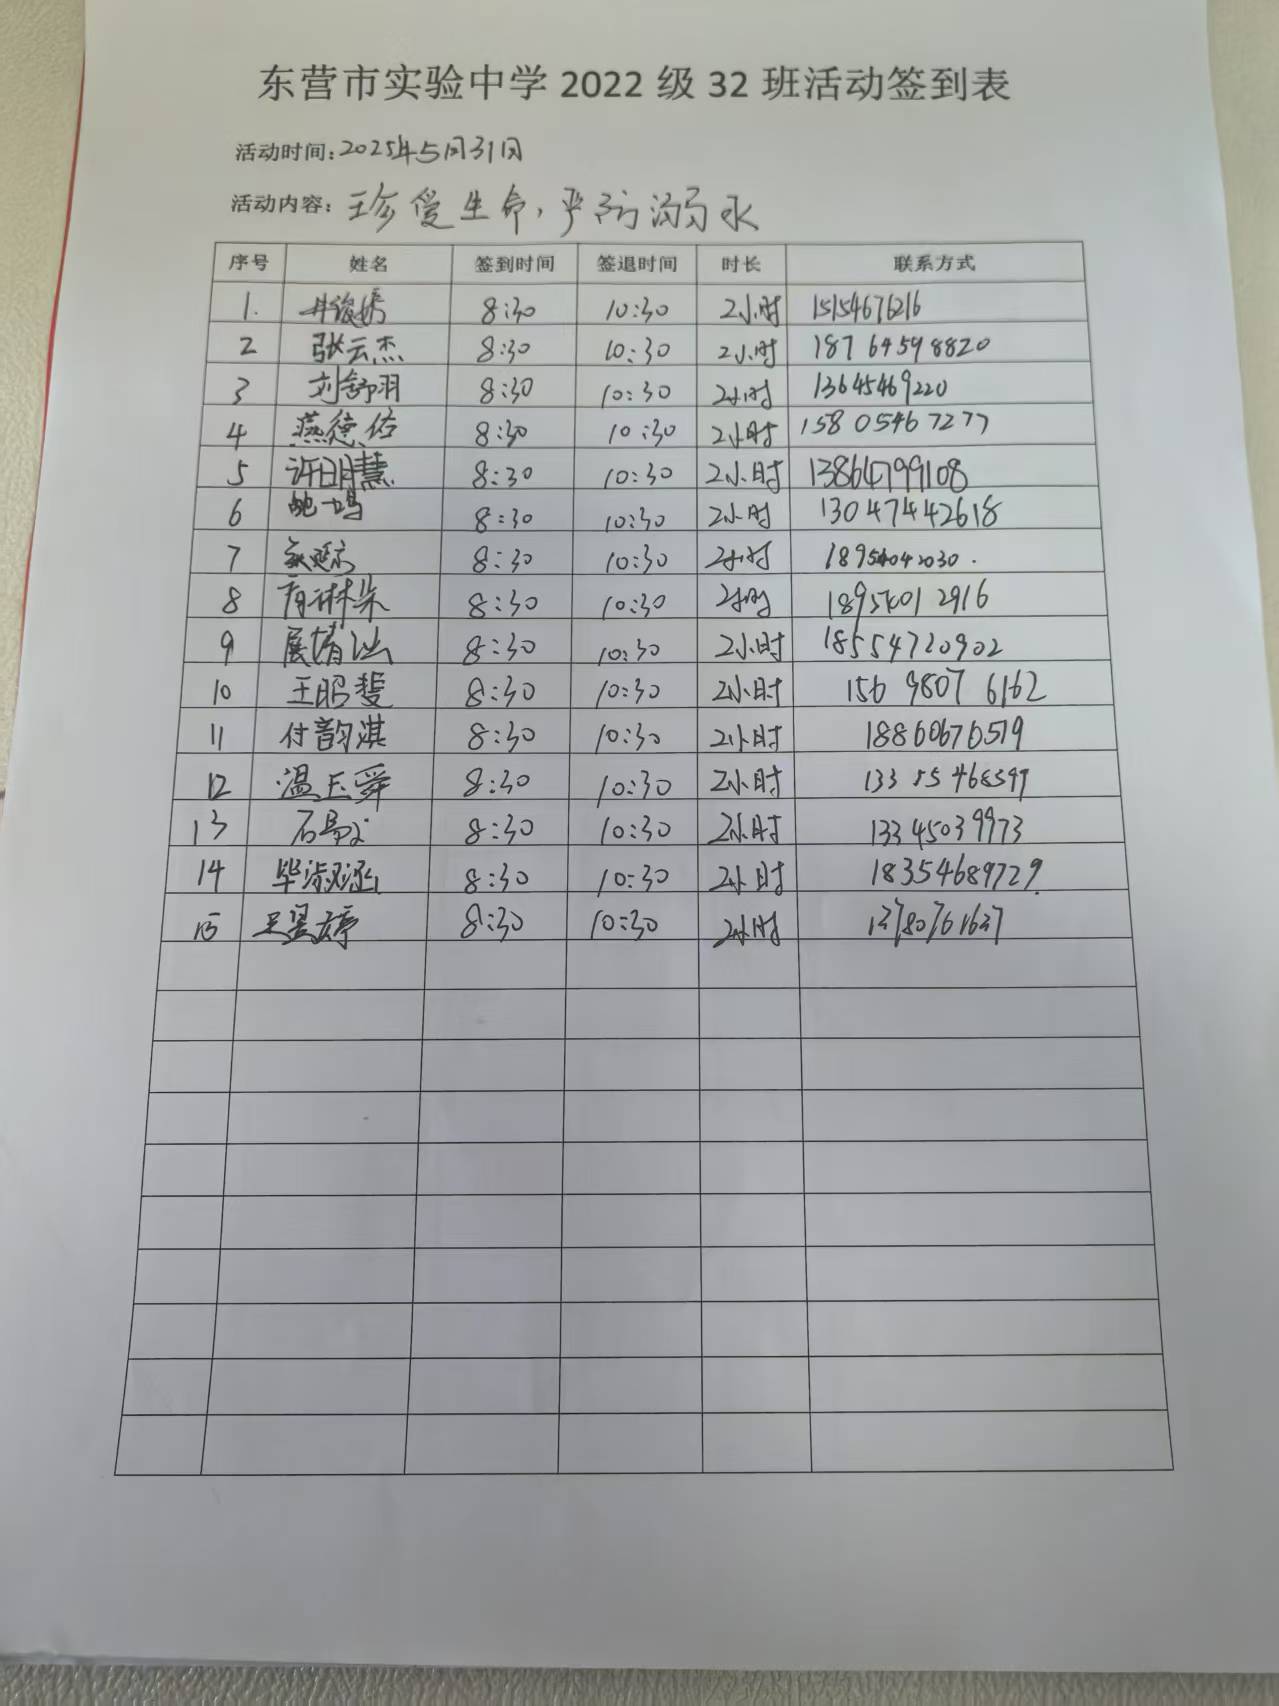 东营市实验中学 2022 级 32 班活动签到表
活动时间:2025年5月31日
活动内容:珍爱生命,严防溺水
序号 姓名 签到时间 签退时间 时长 联系方式
1. 8:30 10:30 2小时 15154676216
2 张云杰 8:30 10:30 2小时 18764598820
3 刘舒羽 8:30 10:30 2小时 13645469220
4 燕德佑 8:30 10:30 2小时 15805467277
5 许明慧 8:30 10:30 2小时 13864799108
6 8:30 10:30 2小时 13047442618
7 8:30 10:30 2小时
8 8:30 10:30 2小时 18954012916
9 8:30 10:30 2小时 18554720902
10 王昭斐 8:30 10:30 2小时 15698076162
11 付韵淇 8:30 10:30 2小时 18860676519
12 温玉舜 8:30 10:30 2小时
13 8:30 10:30 2小时 13345039973
14 毕淑涵 8:30 10:30 2小时 18354689729
15 8:30 10:30 2小时 13780761637